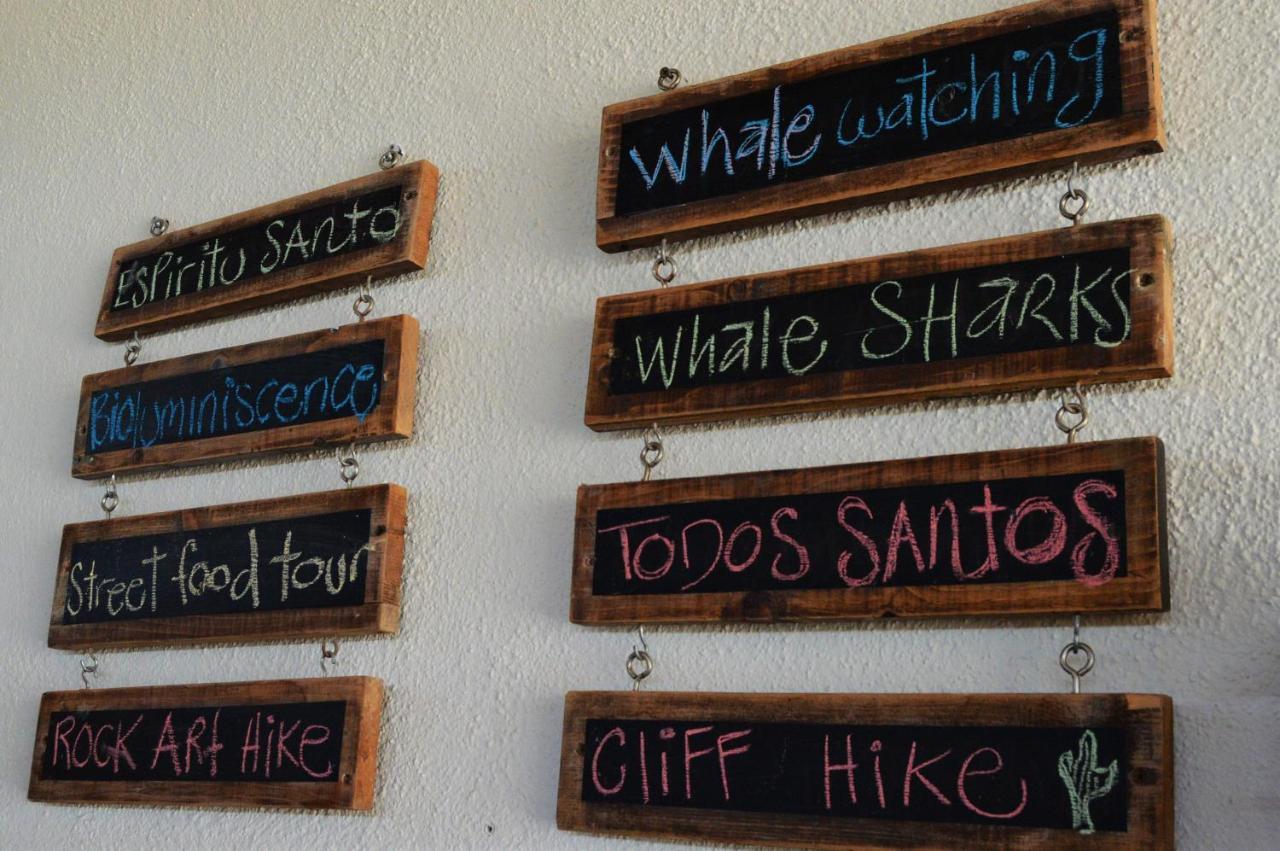 Espiritu Santo
Bioluminiscence
Street food tour
Rock Art Hike
Whale watching
Whale Sharks
Todos Santos
Cliff Hike